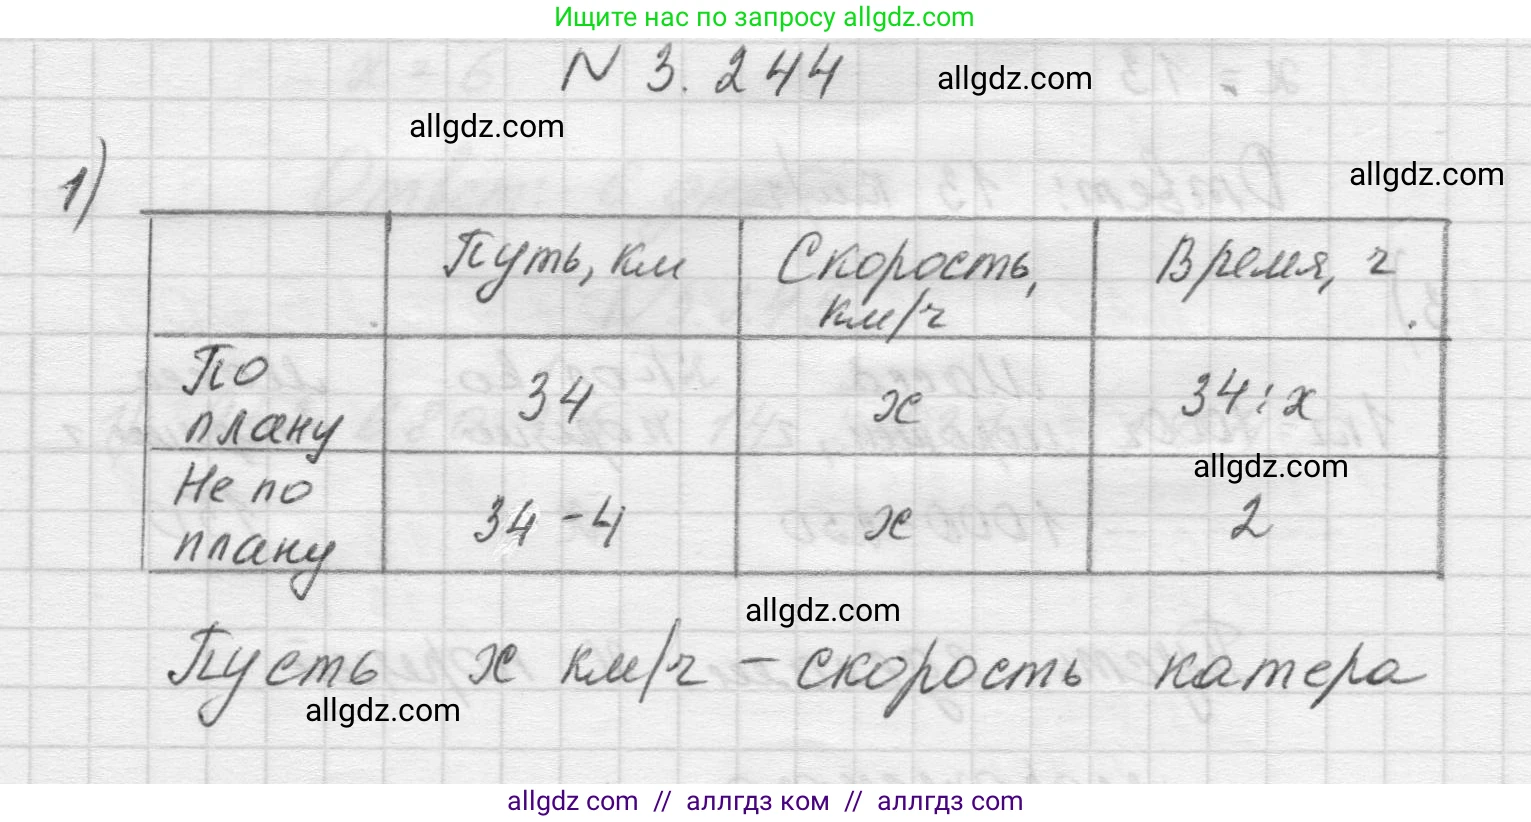 Ищите нас по запросу allgdz.com
N 3.244
allgdz.com
allgdz.com
1)
allgdz.com
Путь, км
Скорость, км/ч
Время, ч
По плану
34
x
34 : x
Не по плану
34 - 4
x
allgdz.com
2
allgdz.com
Пусть x км/ч - скорость катера
allgdz.com
allgdz com // аллгдз ком // аллгдз com